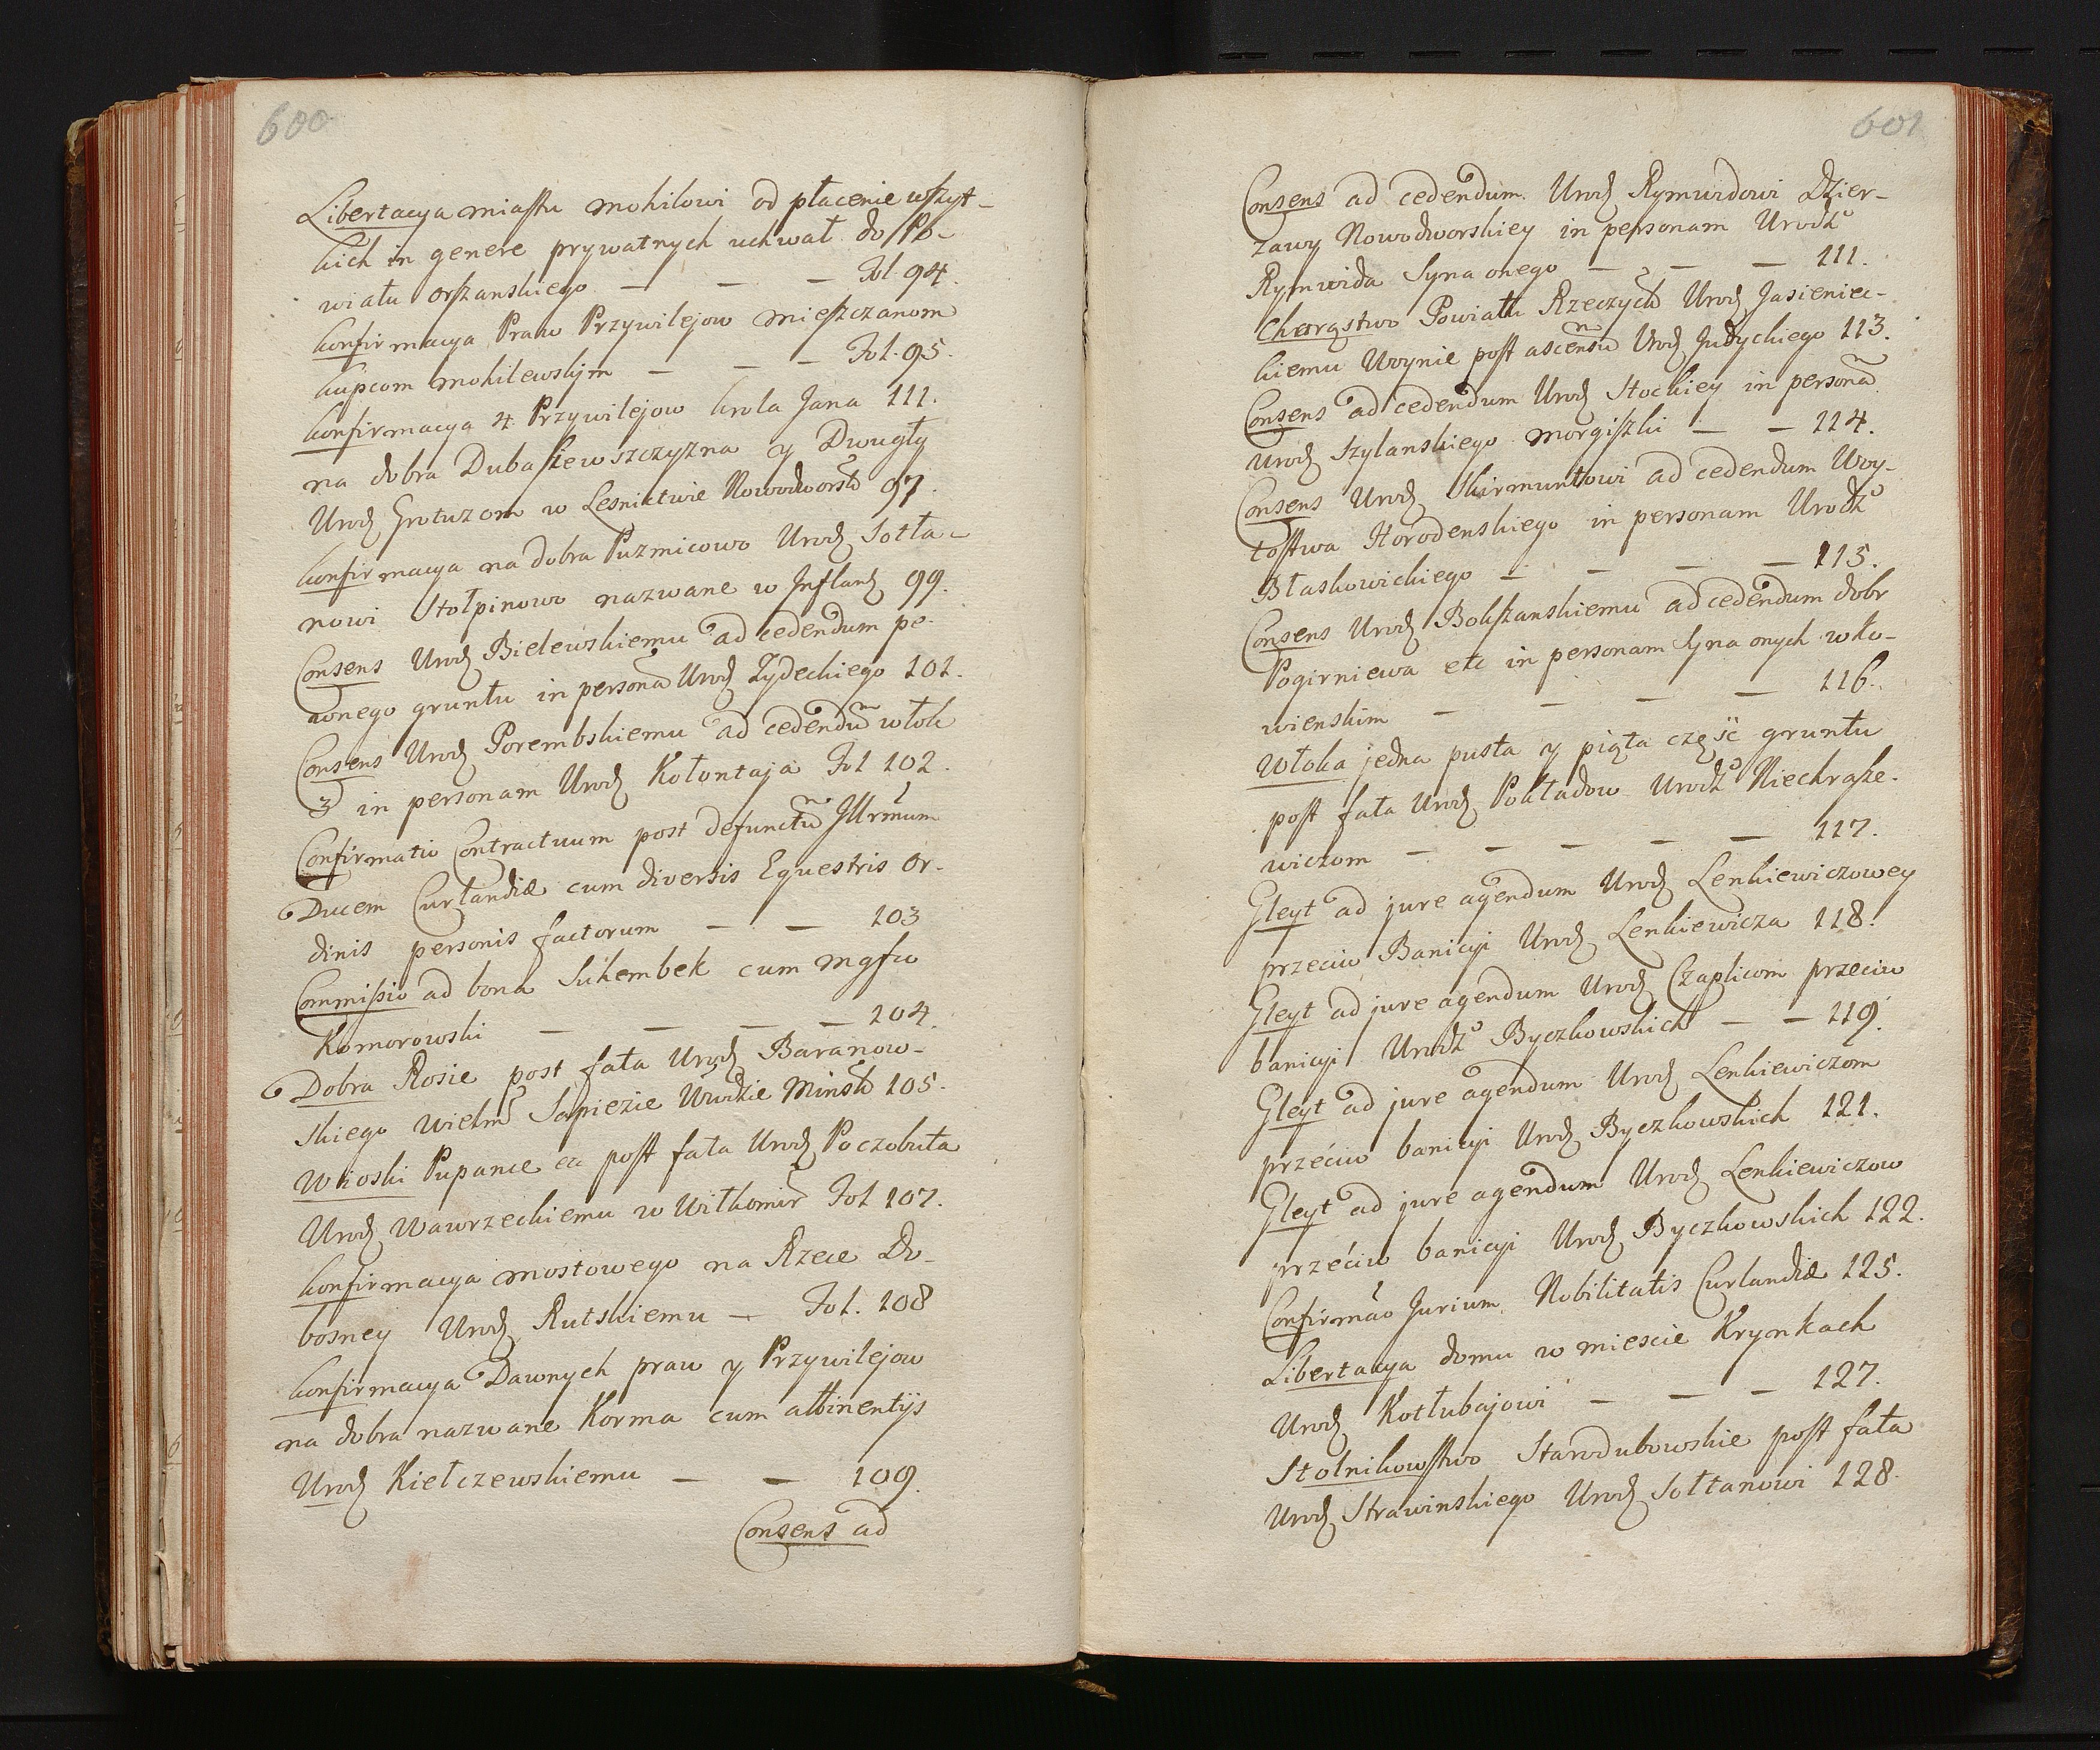 600
Libertacya miastu mohilowi od płacenie wszyt-
kich in genere prywatnych uchwał do Po-
wiatu orszanskiego — — — Fol. 94.
konfirmacya Praw Przywilejow mieszczanom
kupcom mohilewskjm — — — Fol. 95.
konfirmacya 4. Przywilejow krola Jana 111.
na dobra Dubasiewszczyzna y Dwugły
Urod Grotuzom w Lesnictwie Nowodworsk 97.
konfirmacya na dobra Puzmicowo Urod Sołta-
nowi Stołpinowo nazwane w Infland 99.
Consens Urod Bielewskiemu ad cedendum pe-
wnego gruntu in persona Urod Zydeckiego 101.
Consens Urod Porembskiemu ad cedendū włok
3 in personam Urod Kołontaja Fol 102.
Confirmatio Contractuum post defunctū Illrmum
Ducem Curlandiæ cum diversis Equestris or-
dinis personis factorum — — 103
Commissio ad bona Sukembek cum mgfco
Komorowski — — — — 104.
Dobra Rosie post fata Urod Baranow-
skiego Wielm Sapiezie Wwdzie Minsk 105.
Wioski Pupance etc post fata Urod Poczobuta
Urod Wawrzeckiemu w Wiłkomir Fol 107.
konfirmacya mostowego na Rzece Do-
bosney Urod Rutskiemu — Fol. 108
konfirmacya Dawnych praw y Przywilejow
na dobra nazwane Korma cum attinentijs
Urod Kiełczewskiemu — — 109.
Consens ad
601
Consens ad cedendum Urod Rymwidowi Dzier-
zawy Nowodworskiey in personam Urodz
Rymwida Syna onego — — — 111.
Chorąstwo Powiatu Rzeczyck Urod Jasieniec-
kiemu Woynie post ascensū Urod Judyckiego 113.
Consens ad cedendum Urod Stockiey in personā
Urod Szylanskiego morgiszki — — 114.
Consens Urod Skirmuntowi ad cedendum Woy-
tostwa Horodenskiego in personam Urodz
Błaskowickiego — — — — 115.
Consens Urod Bokszanskiemu ad cedendum dobr
Pogirniewa etc in personam Syna onych w ko-
wienskim — — — — 116.
Włoka jedna pusta y piąta część gruntu
post fata Urod Pokładow Urodz Niechrasze-
wiczom — — — — — 117.
Gleyt ad jure agendum Urod Lenkiewiczowey
przeciw Banicyi Urod Lenkiewicza 118.
Gleyt ad jure agendum Urod Czaplicom przeciw
banicyi Urodz Byczkowskich — — 119.
Gleyt ad jure agendum Urod Lenkiewiczom
przeciw banicyi Urod Byczkowskich 121.
Gleyt ad jure agendum Urod Lenkiewiczow
przeciw banicyi Urod Byczkowskich 122.
Confirmāo Jurium Nobilitatis Curlandiæ 125.
Libertacya domu w miescie Krynkach
Urod Kotłubajowi — — — 127.
Stolnikowstwo Starodubowskie post fata
Urod Strawinskiego Urod Sołtanowi 128.